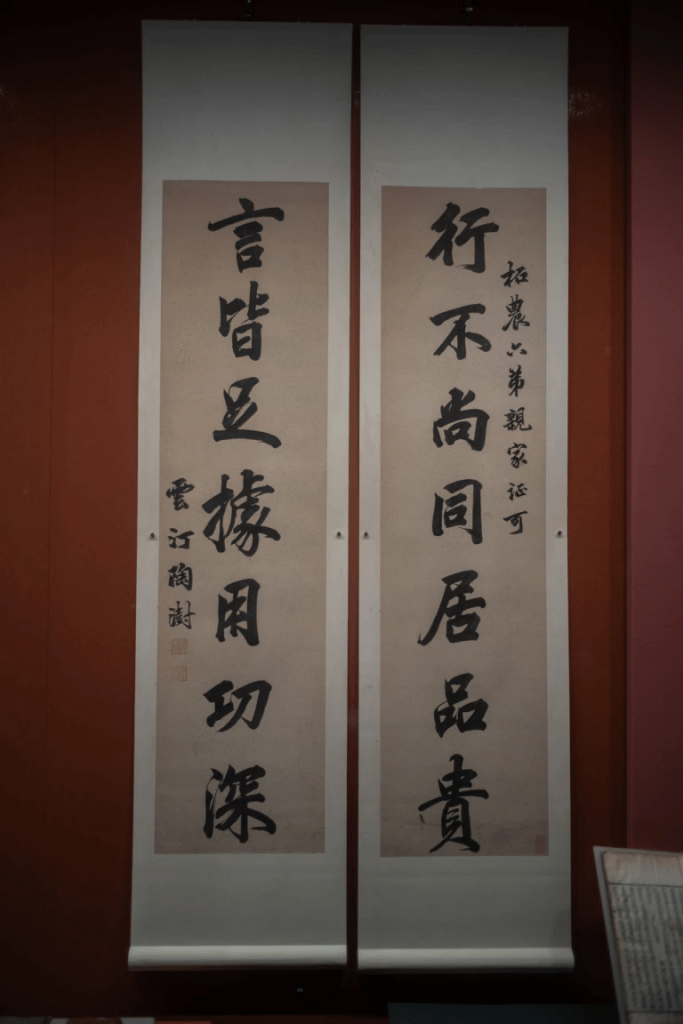 行不尚同居品貴
柘農六弟親家証可
言皆足據用功深
雲汀陶澍